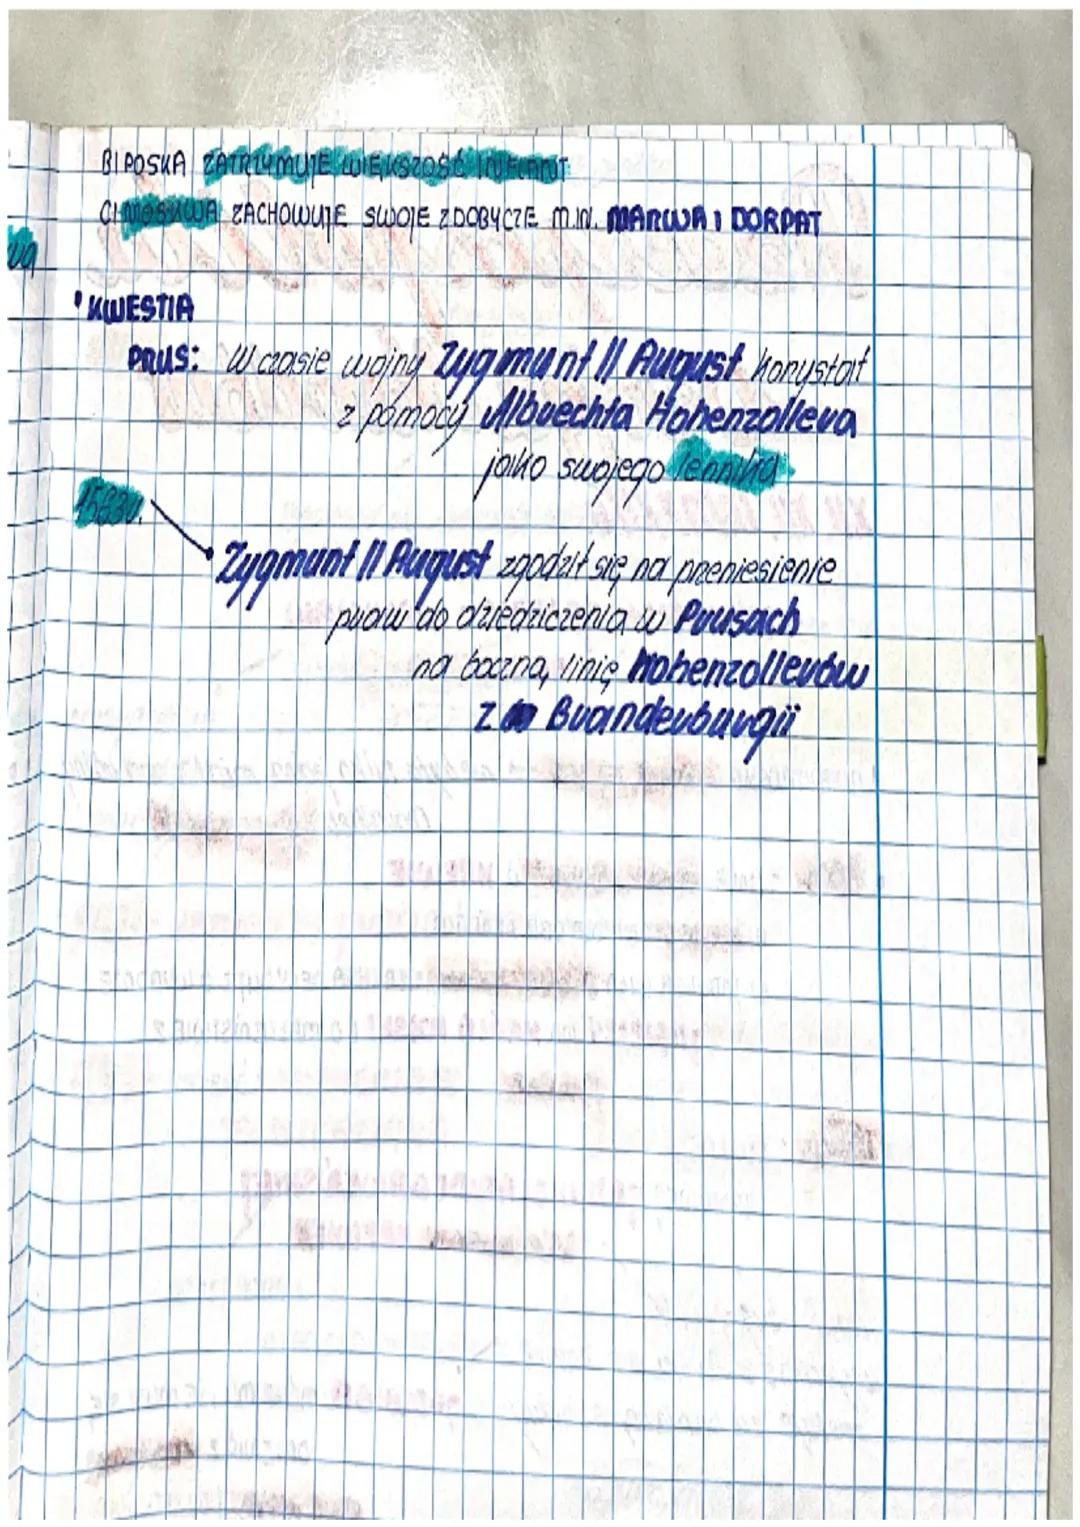 B) POSKA ZATRZYMUJE WIĘKSZOŚĆ INFLANT
C) MOSKWA ZACHOWUJE SWOJE ZDOBYCZE M.IN. NARWA I DORPAT
• KWESTIA
PRUS: W czasie wojny Zygmunt II August korzystał
z pomocy Albrechta Hohenzollera
jako swojego lennika
1563r.
Zygmunt II August zgodził się na przeniesienie
praw do dziedziczenia w Prusach
na boczną linię Hohenzollerów
z Brandenburgii